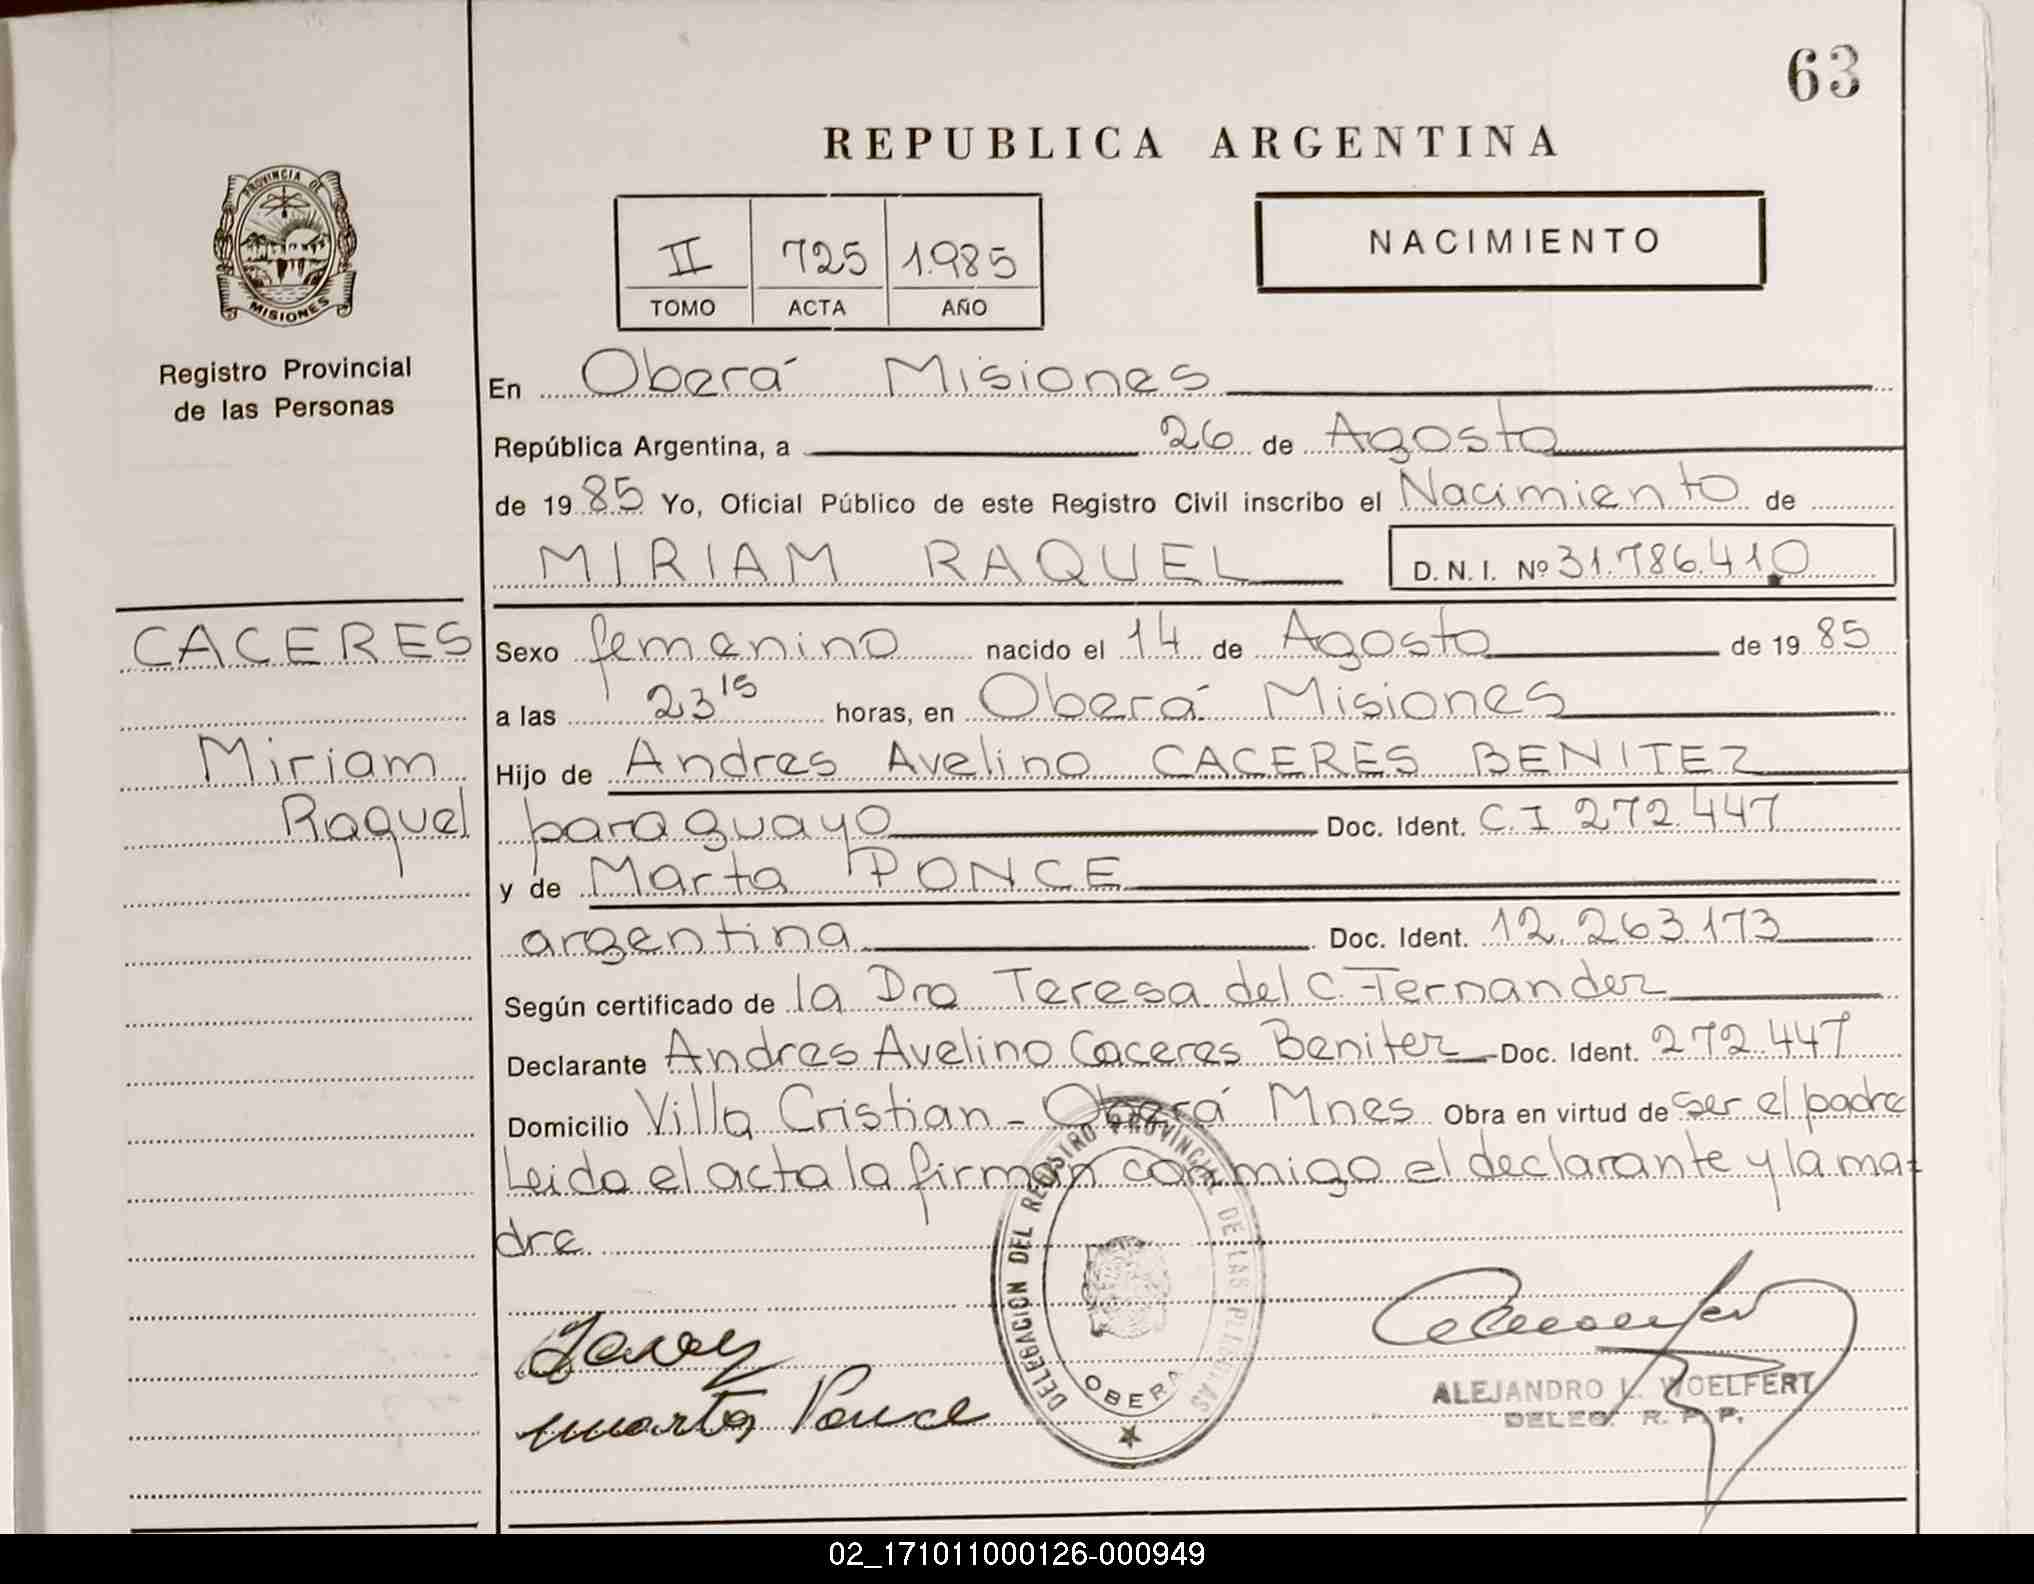 63
REPUBLICA ARGENTINA
PROVINCIA DE
MISIONES
Registro Provincial
de las Personas
II 725 1.985
TOMO ACTA AÑO
NACIMIENTO
En Oberá Misiones
República Argentina, a 26 de Agosto
de 1985 Yo, Oficial Público de este Registro Civil inscribo el Nacimiento de
MIRIAM RAQUEL D. N. I. Nº 31.786.410
CACERES
Miriam
Raquel
Sexo femenino nacido el 14 de Agosto de 1985
a las 23 15 horas, en Oberá Misiones
Hijo de Andres Avelino CACERES BENITEZ
paraguayo Doc. Ident. C.I 272.447
y de Marta PONCE
argentina Doc. Ident. 12.263.173
Según certificado de la Dra Teresa del C. Fernandez
Declarante Andres Avelino Caceres Benitez Doc. Ident. 272.447
Domicilio Villa Cristian - Oberá Mnes Obra en virtud de ser el padre
Leida el acta la firman conmigo el declarante y la ma-
dre
DELEGACION DEL REGISTRO PROVINCIAL DE LAS PERSONAS
OBERA
marta Ponce
ALEJANDRO L. WOELFERT
DELEG. R. P. P.
02_171011000126-000949